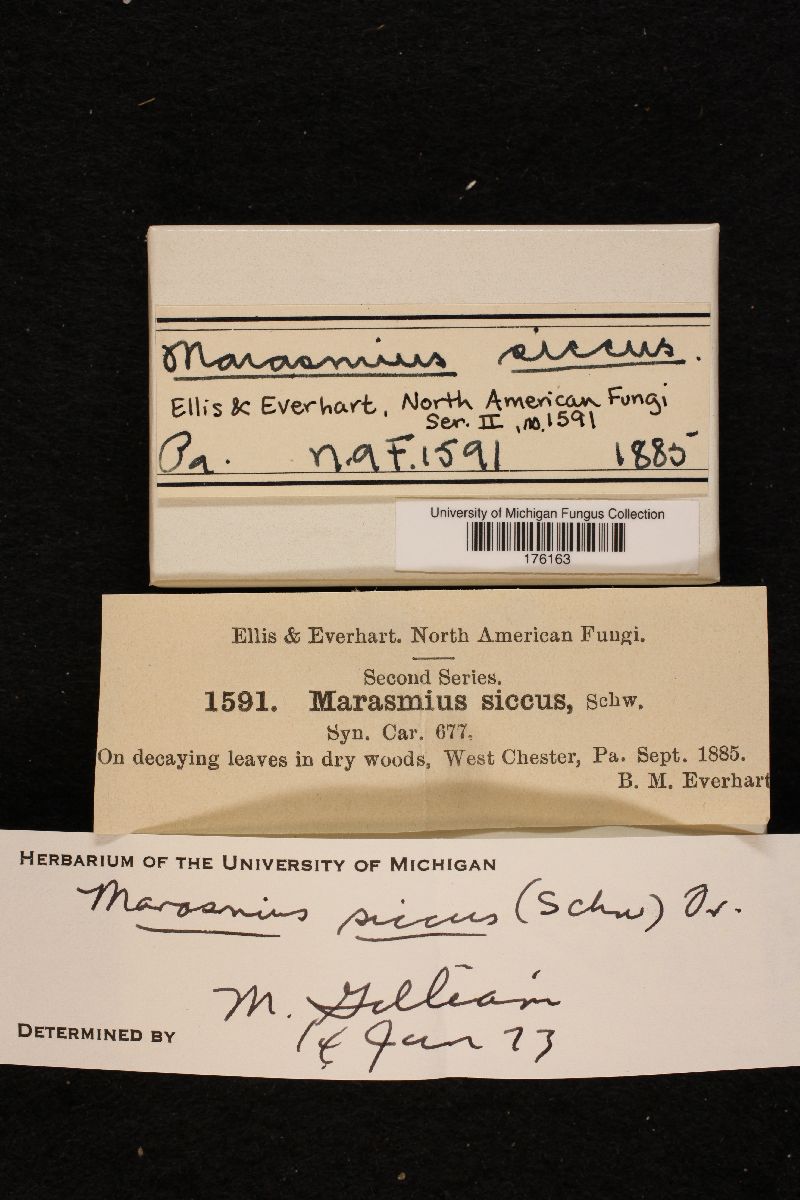 Marasmius siccus.
Ellis & Everhart, North American Fungi
Ser. II, no. 1591
Pa. n.a F. 1591 1885
University of Michigan Fungus Collection
176163
Ellis & Everhart. North American Fungi.
Second Series.
1591. Marasmius siccus, Schw.
Syn. Car. 677.
On decaying leaves in dry woods, West Chester, Pa. Sept. 1885.
B. M. Everhart
HERBARIUM OF THE UNIVERSITY OF MICHIGAN
Marasmius siccus (Schw) Fr.
M. Gilliam
DETERMINED BY 14 Jan 73